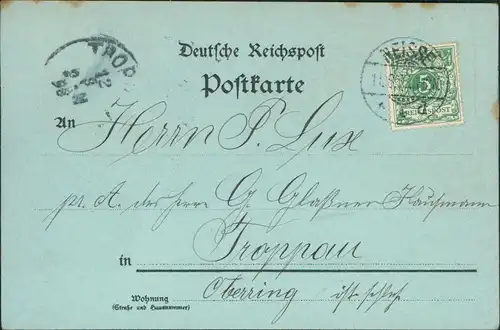 Deutsche Reichspost
Postkarte
TROPP
12
98
NEISSE
5
REICHSPOST
An Herrn P. Lux
pr. A. des Herrn G. Glaßner Kaufmann
in Troppau
Wohnung Oberring
(Straße und Hausnummer)